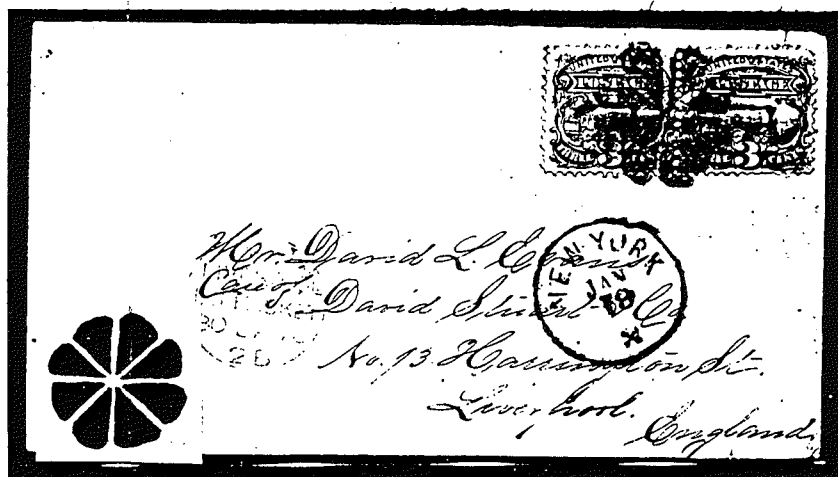 UNITED STATES UNITED STATES
POSTAGE POSTAGE
3 3
NEW YORK
JAN
Mr. David L. Evans
Care of David Stuart & Co
No. 13 Harrington St.
Liverpool.
England